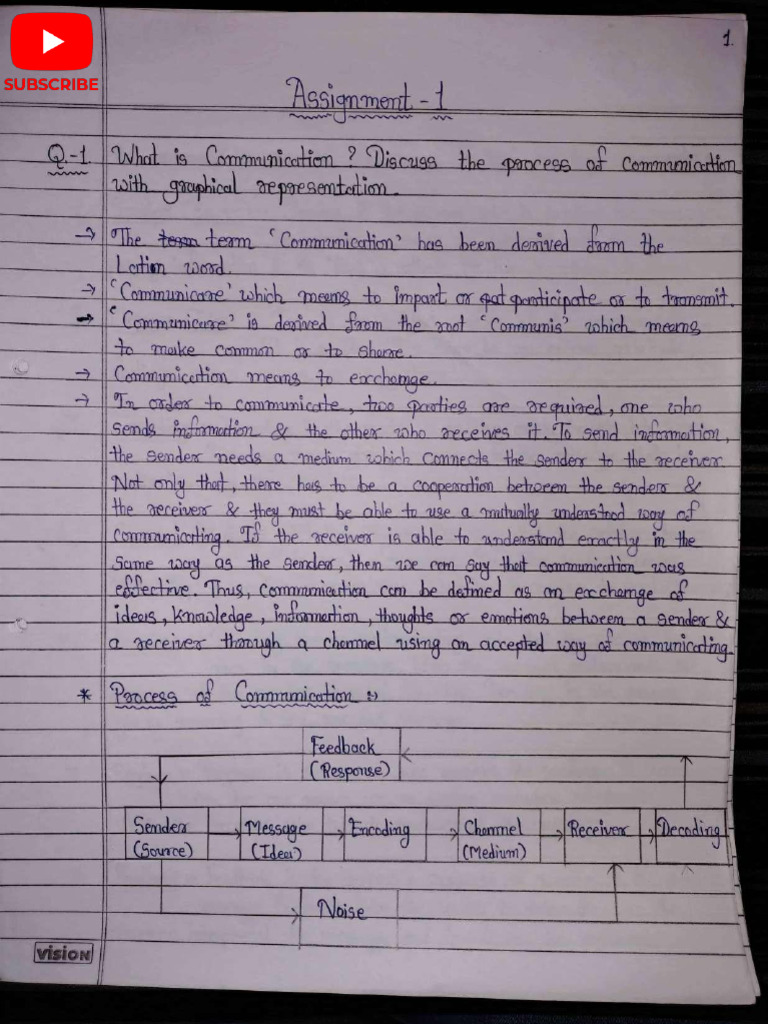 SUBSCRIBE
1.
Assignment - 1
Q.-1. What is Communication ? Discuss the process of communication
with graphical representation.
→ The term term 'Communication' has been derived from the
Latin word.
→ 'Communicare' which means to impart or pat participate or to transmit.
→ 'Communicare' is derived from the root 'Communis' which means
to make common or to share.
→ Communication means to exchange.
→ In order to communicate, two parties are required, one who
sends information & the other who receives it. To send information,
the sender needs a medium which connects the sender to the receiver.
Not only that, there has to be a cooperation between the senders &
the receiver & they must be able to use a mutually understood way of
communicating. If the receiver is able to understand exactly in the
same way as the sender, then we can say that communication was
effective. Thus, communication can be defined as an exchange of
ideas, knowledge, information, thoughts or emotions between a sender &
a receiver through a channel using an accepted way of communicating.
* Process of Communication :-
Feedback
(Response)
Sender → Message → Encoding → Channel → Receiver → Decoding
(Source) (Idea) (Medium)
Noise
vision